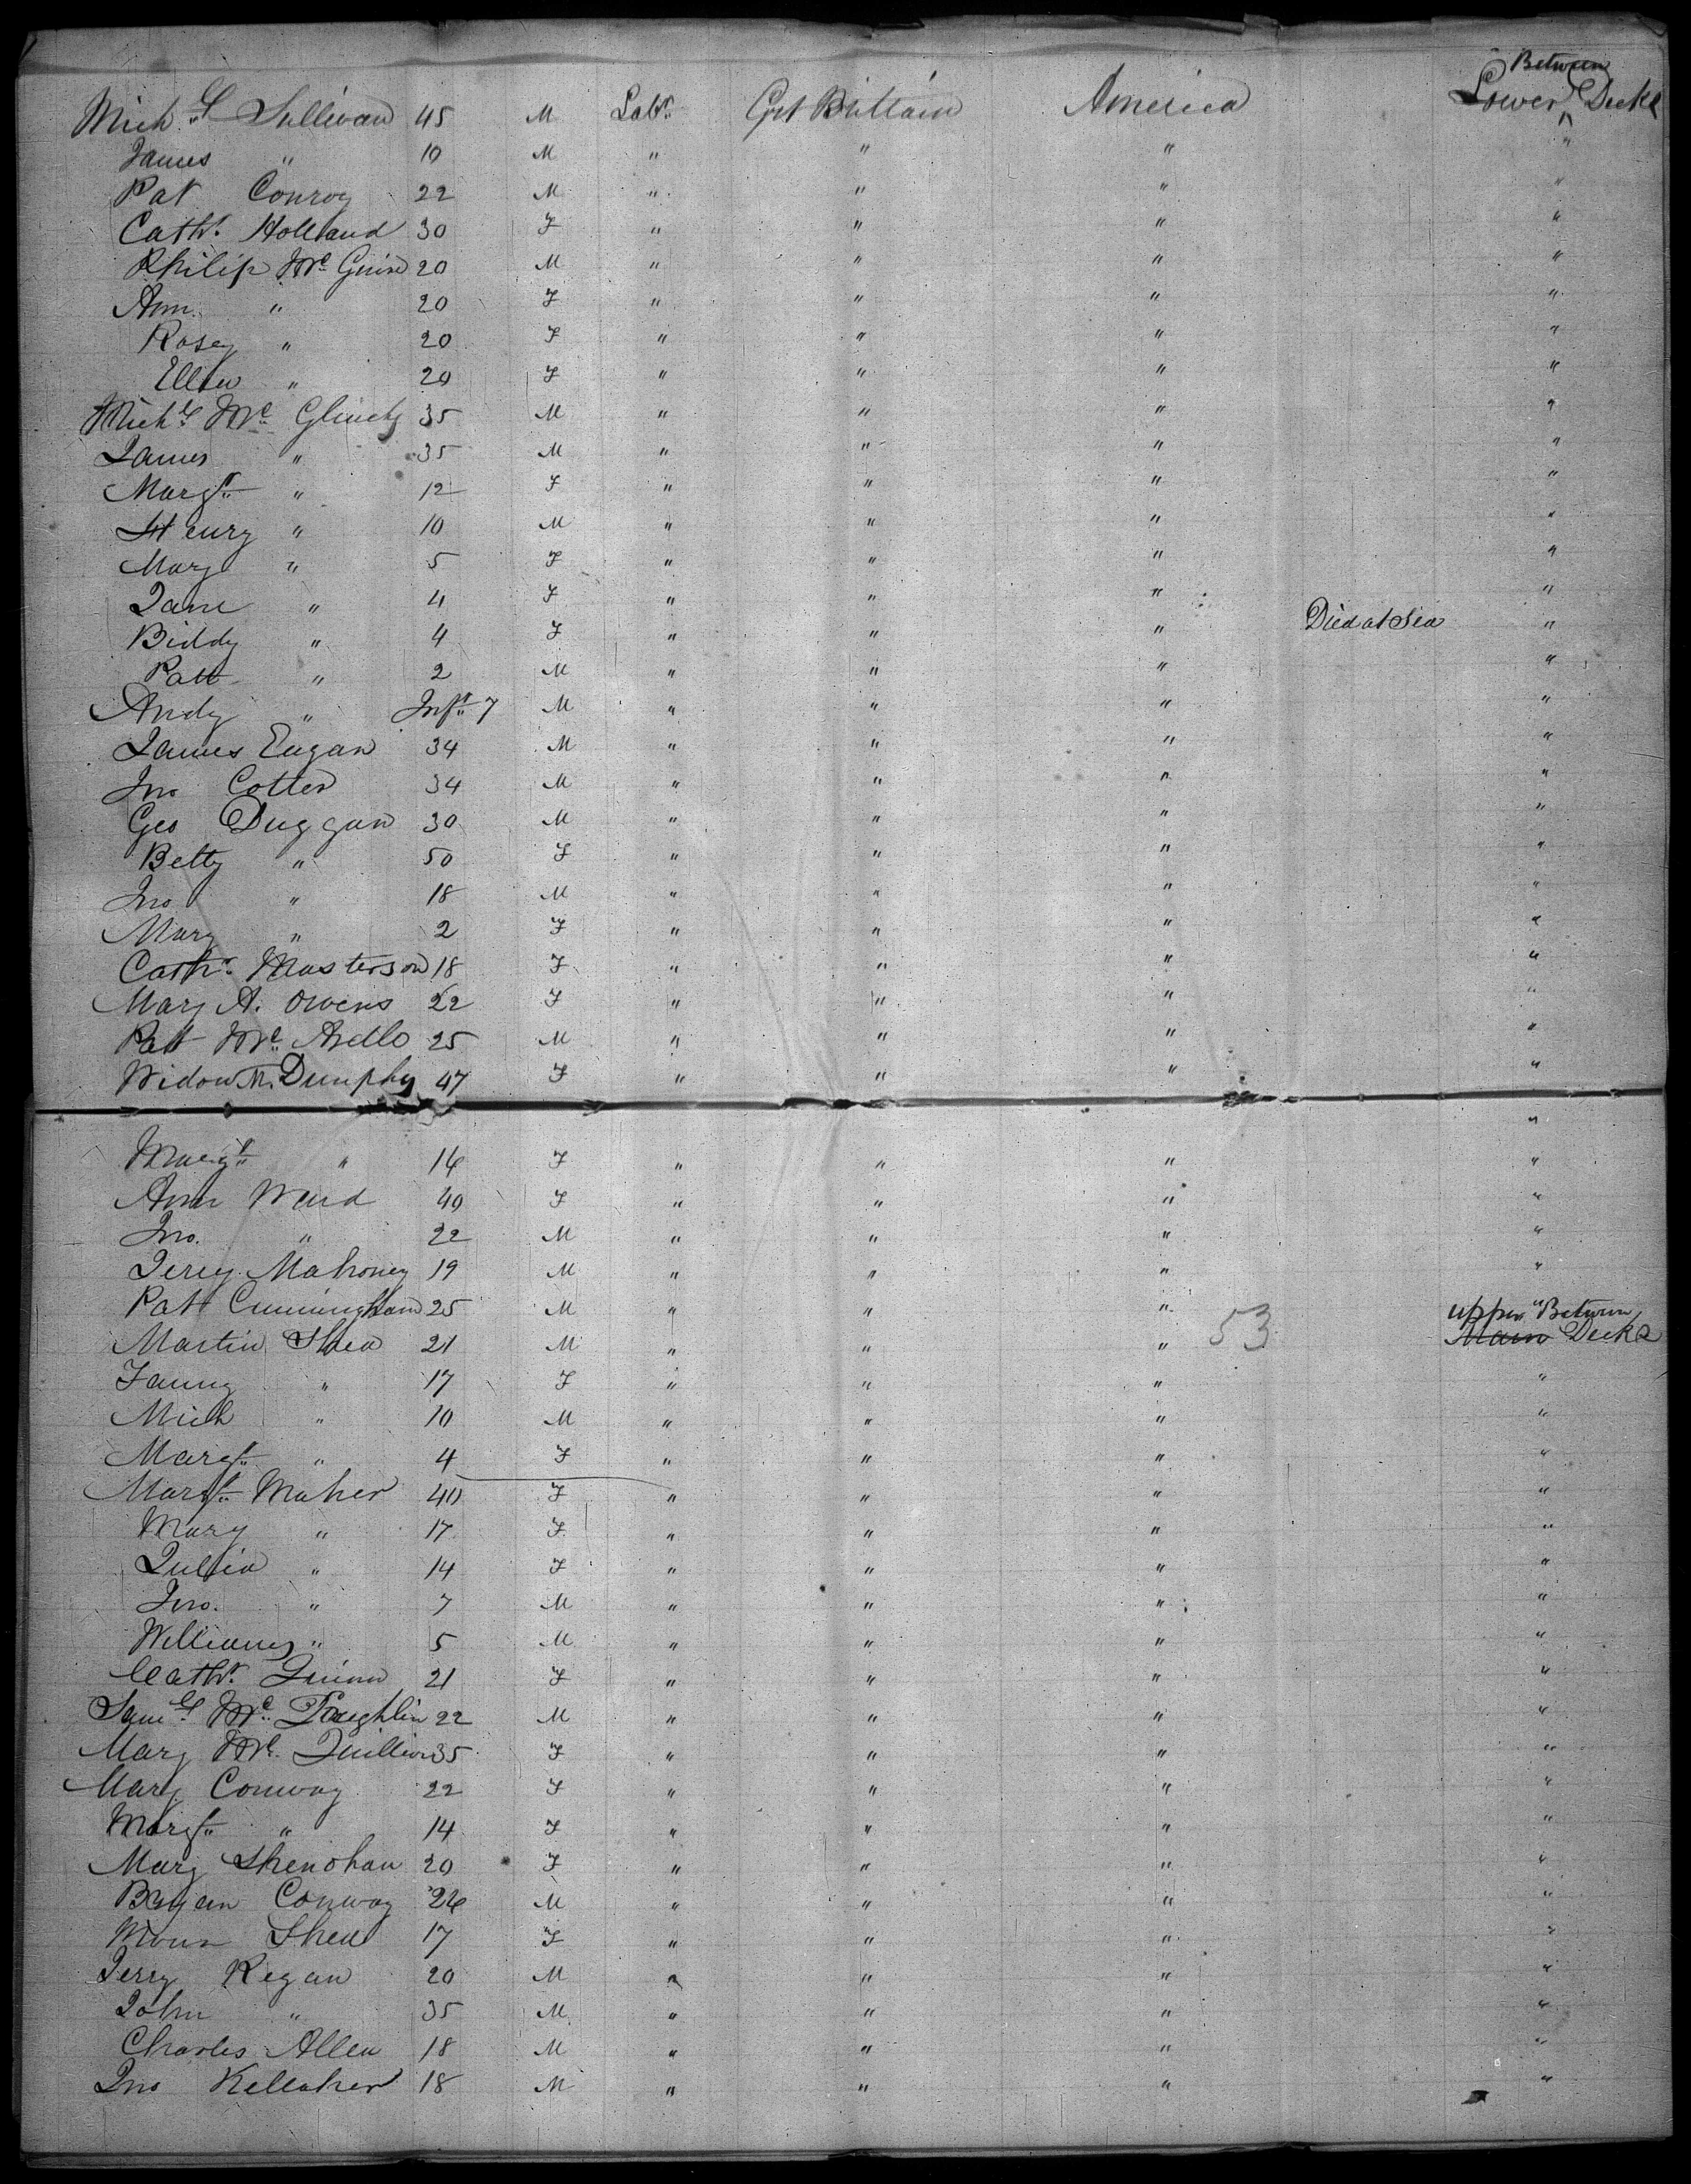 Between
Mich.l Sullivan 45 M Labr. Grt Brittain America Lower Decks
James " 10 M " " " "
Pat Conroy 22 M " " " "
Cathr. Holland 30 F " " " "
Philip Mc Guire 20 M " " " "
Ann " 20 F " " " "
Rosey " 20 F " " " "
Ellen " 20 F " " " "
Michl. Mc Glinchy 35 M " " " "
James " 35 M " " " "
Margt. " 12 F " " " "
Henry " 10 M " " " "
Mary " 5 F " " " "
Jane " 4 F " " " "
Biddy " 4 F " " " Died at Sea "
Patt " 2 M " " " "
Andy " Inft. 7 M " " " "
James Eagan 34 M " " " "
Jno Cotter 34 M " " " "
Geo Duggan 30 M " " " "
Betty " 50 F " " " "
Jno " 18 M " " " "
Mary " 2 F " " " "
Cathr. Masterson 18 F " " " "
Mary A. Owens 22 F " " " "
Patt Mc 25 M " " " "
Widow M. Dunphy 47 F " " " "
"
Margt. " 16 F " " " "
Ann Ward 40 F " " " "
Jno. " 22 M " " " "
Jerry Mahoney 19 M " " " "
Patt Cunningham 25 M " " " upper " Between
Martin Shea 21 M " " " 53 Main Decks
Fanny " 17 F " " " "
Mich " 10 M " " " "
Margt. " 4 F " " " "
Margt. Maher 40 F " " " "
Mary " 17 F " " " "
Julia " 14 F " " " "
Jno. " 7 M " " " "
William " 5 M " " " "
Cathr. Quinn 21 F " " " "
Saml. Mc Laughlin 22 M " " " "
Mary Mc. Quillion 35 F " " " "
Mary Conway 22 F " " " "
Margt. " 14 F " " " "
Mary Shenohan 20 F " " " "
Bryan Conway 26 M " " " "
Shea 17 F " " " "
Jerry Regan 20 M " " " "
John " 35 M " " " "
Charles Allen 18 M " " " "
Jno Kellaher 18 M " " " "